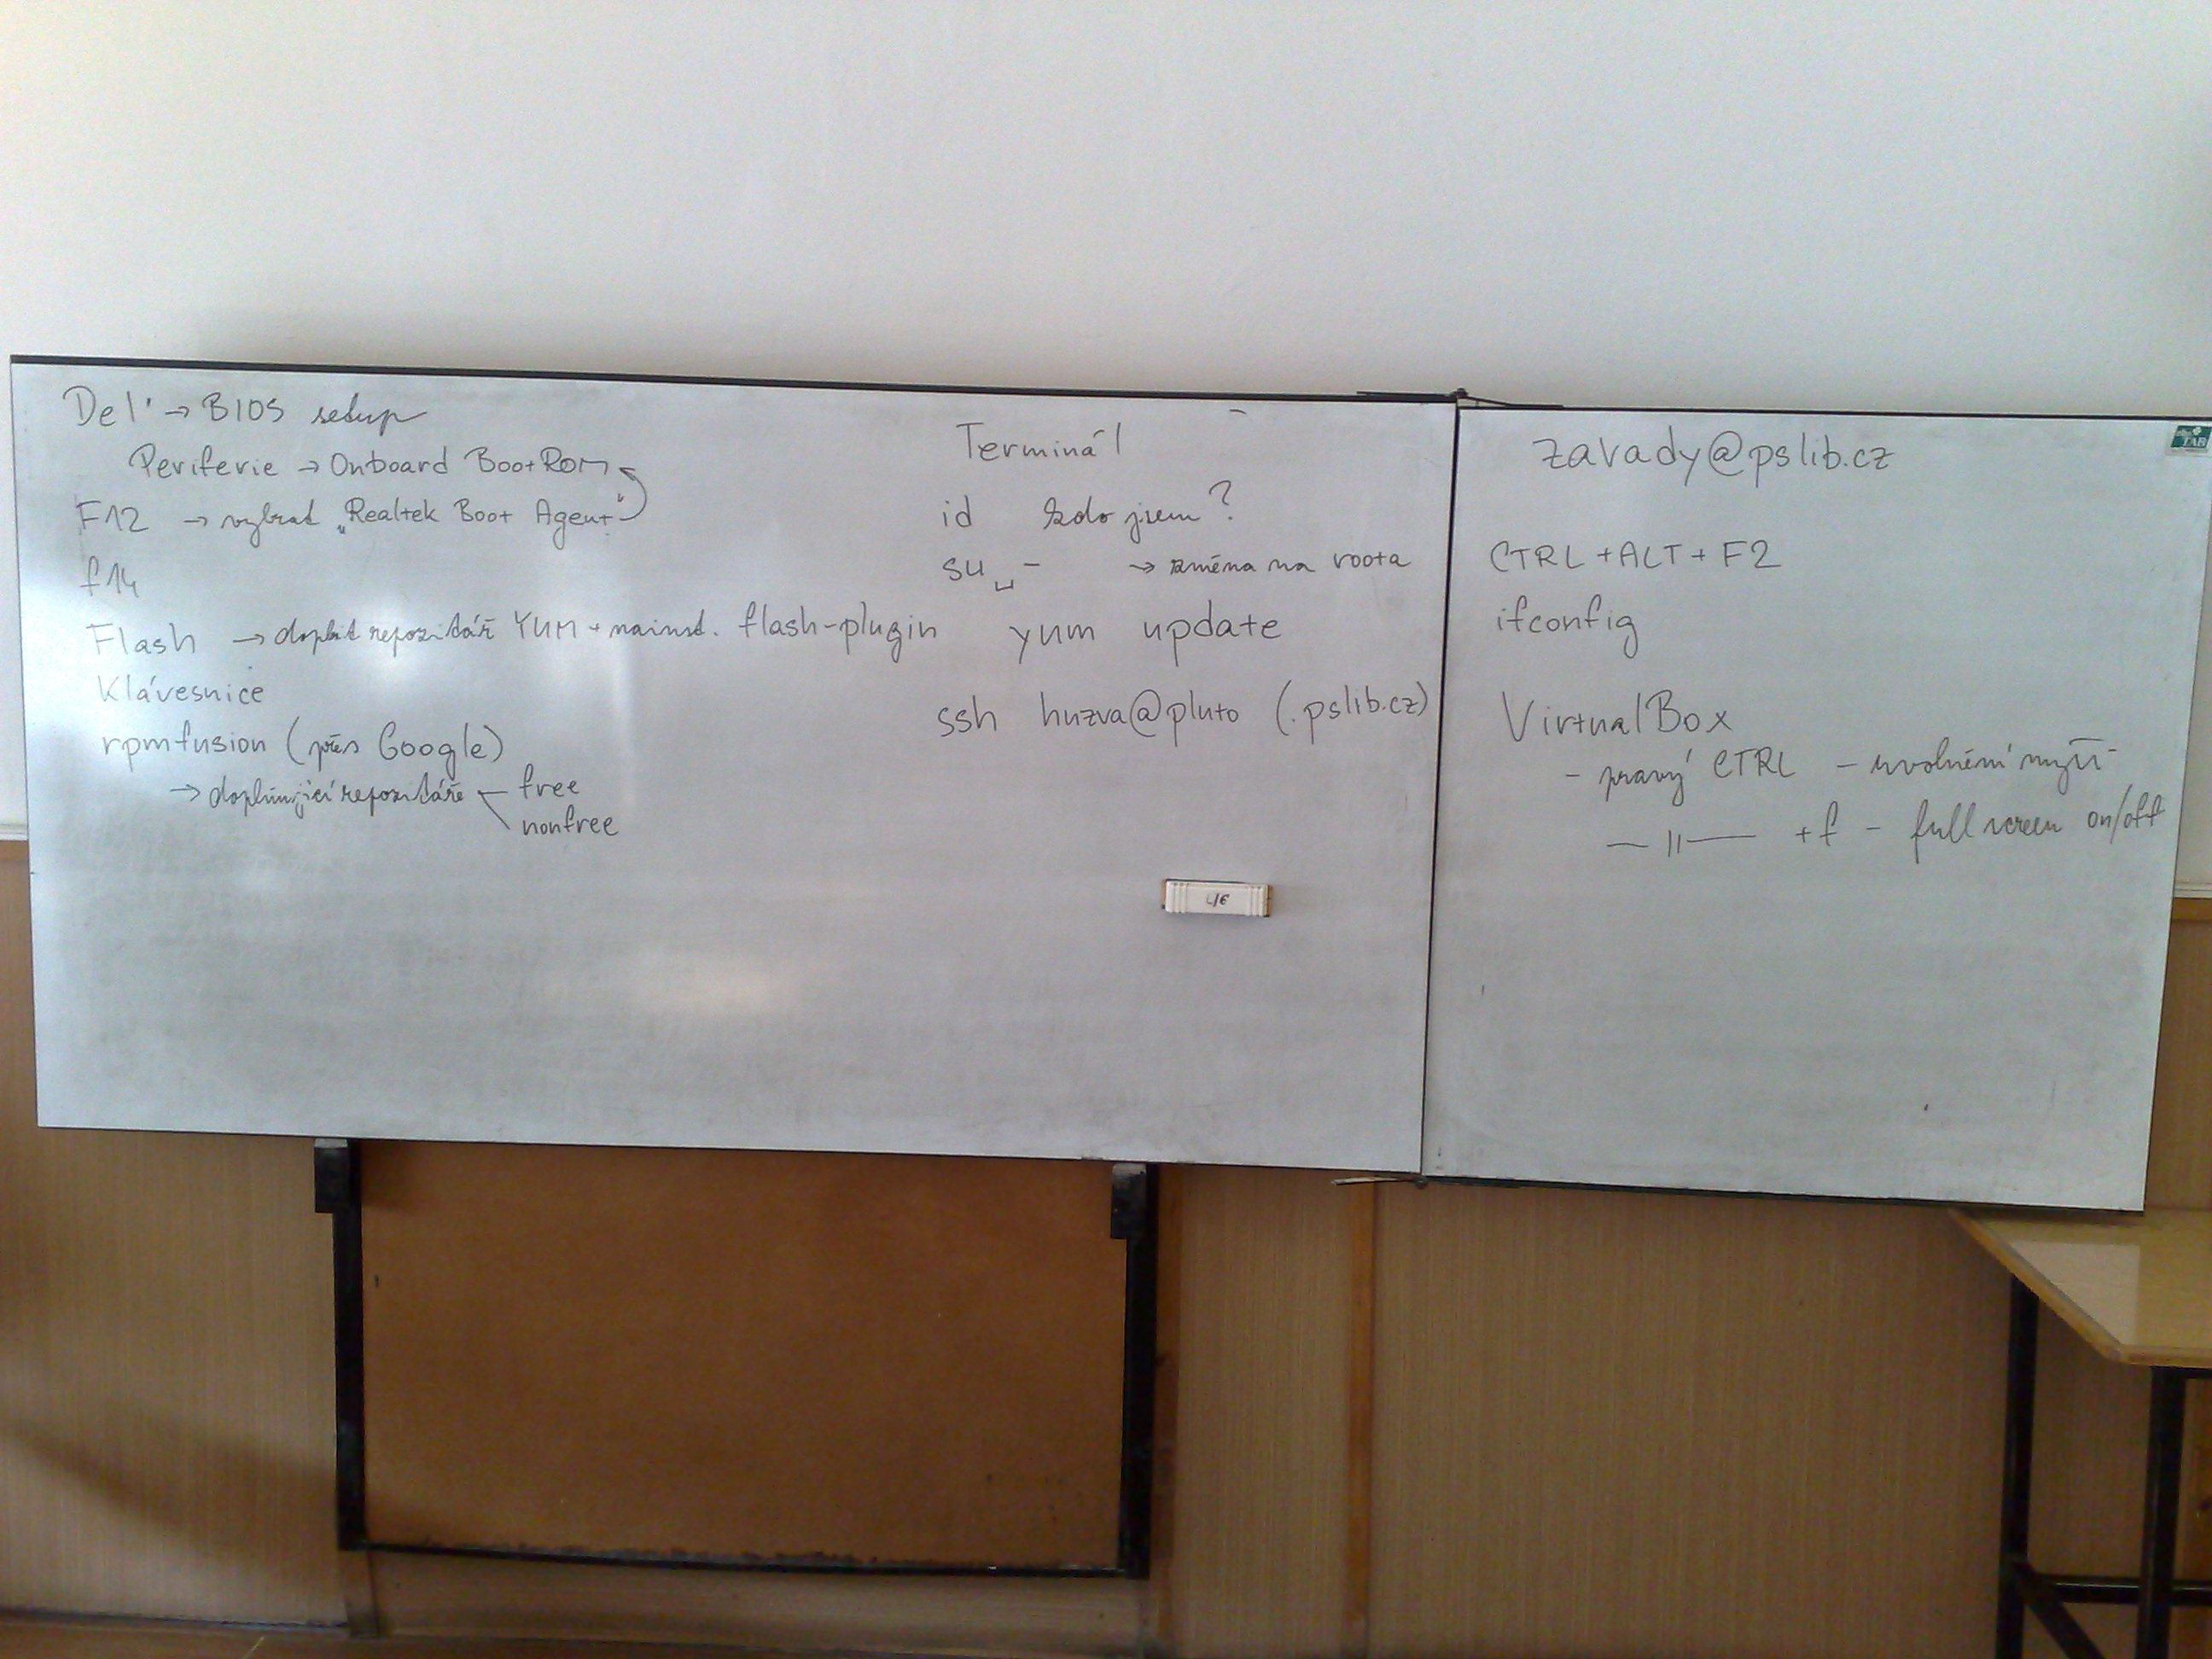 Del → BIOS setup
Periferie → Onboard BootROM
F12 → vybrat „Realtek Boot Agent"
f14
Flash → doplnit repozitář YUM + nainst. flash-plugin
Klávesnice
rpmfusion (přes Google)
→ doplňující repozitáře
free
nonfree
Terminál
id kdo jsem?
su ␣ - → změna na roota
yum update
ssh huzva@pluto (.pslib.cz)
zavady@pslib.cz
CTRL + ALT + F2
ifconfig
VirtualBox
- pravý CTRL - uvolnění myši
— 〃 — + f - full screen on/off
L/E
TAB